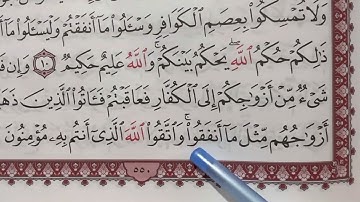 وَلَا تُمْسِكُوا۟ بِعِصَمِ ٱلْكَوَافِرِ وَسْـَٔلُوا۟ مَآ أَنفَقْتُمْ وَلْيَسْـَٔلُوا۟ مَآ
ذَٰلِكُمْ حُكْمُ ٱللَّهِ ۖ يَحْكُمُ بَيْنَكُمْ ۚ وَٱللَّهُ عَلِيمٌ حَكِيمٌ ١٠ وَإِن فَ
شَىْءٌ مِّنْ أَزْوَٰجِكُمْ إِلَى ٱلْكُفَّارِ فَعَاقَبْتُمْ فَـَٔاتُوا۟ ٱلَّذِينَ ذَهَ
أَزْوَٰجُهُم مِّثْلَ مَآ أَنفَقُوا۟ ۚ وَٱتَّقُوا۟ ٱللَّهَ ٱلَّذِىٓ أَنتُم بِهِۦ مُؤْمِنُونَ
٥٥٠